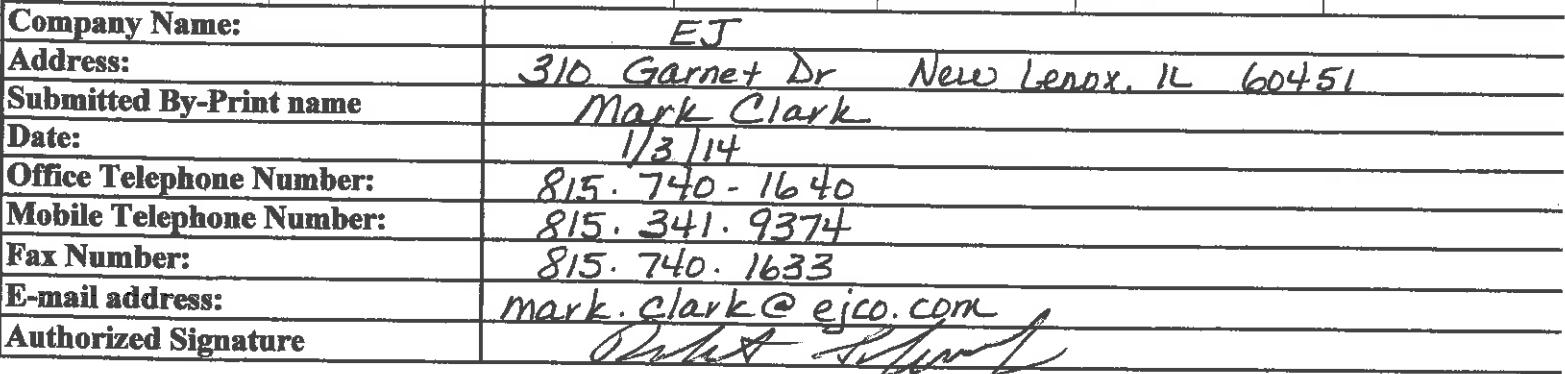 Company Name: EJ
Address: 310 Garnet Dr New Lenox, IL 60451
Submitted By-Print name Mark Clark
Date: 1/3/14
Office Telephone Number: 815. 740 - 1640
Mobile Telephone Number: 815. 341. 9374
Fax Number: 815. 740. 1633
E-mail address: mark.clark@ejco.com
Authorized Signature